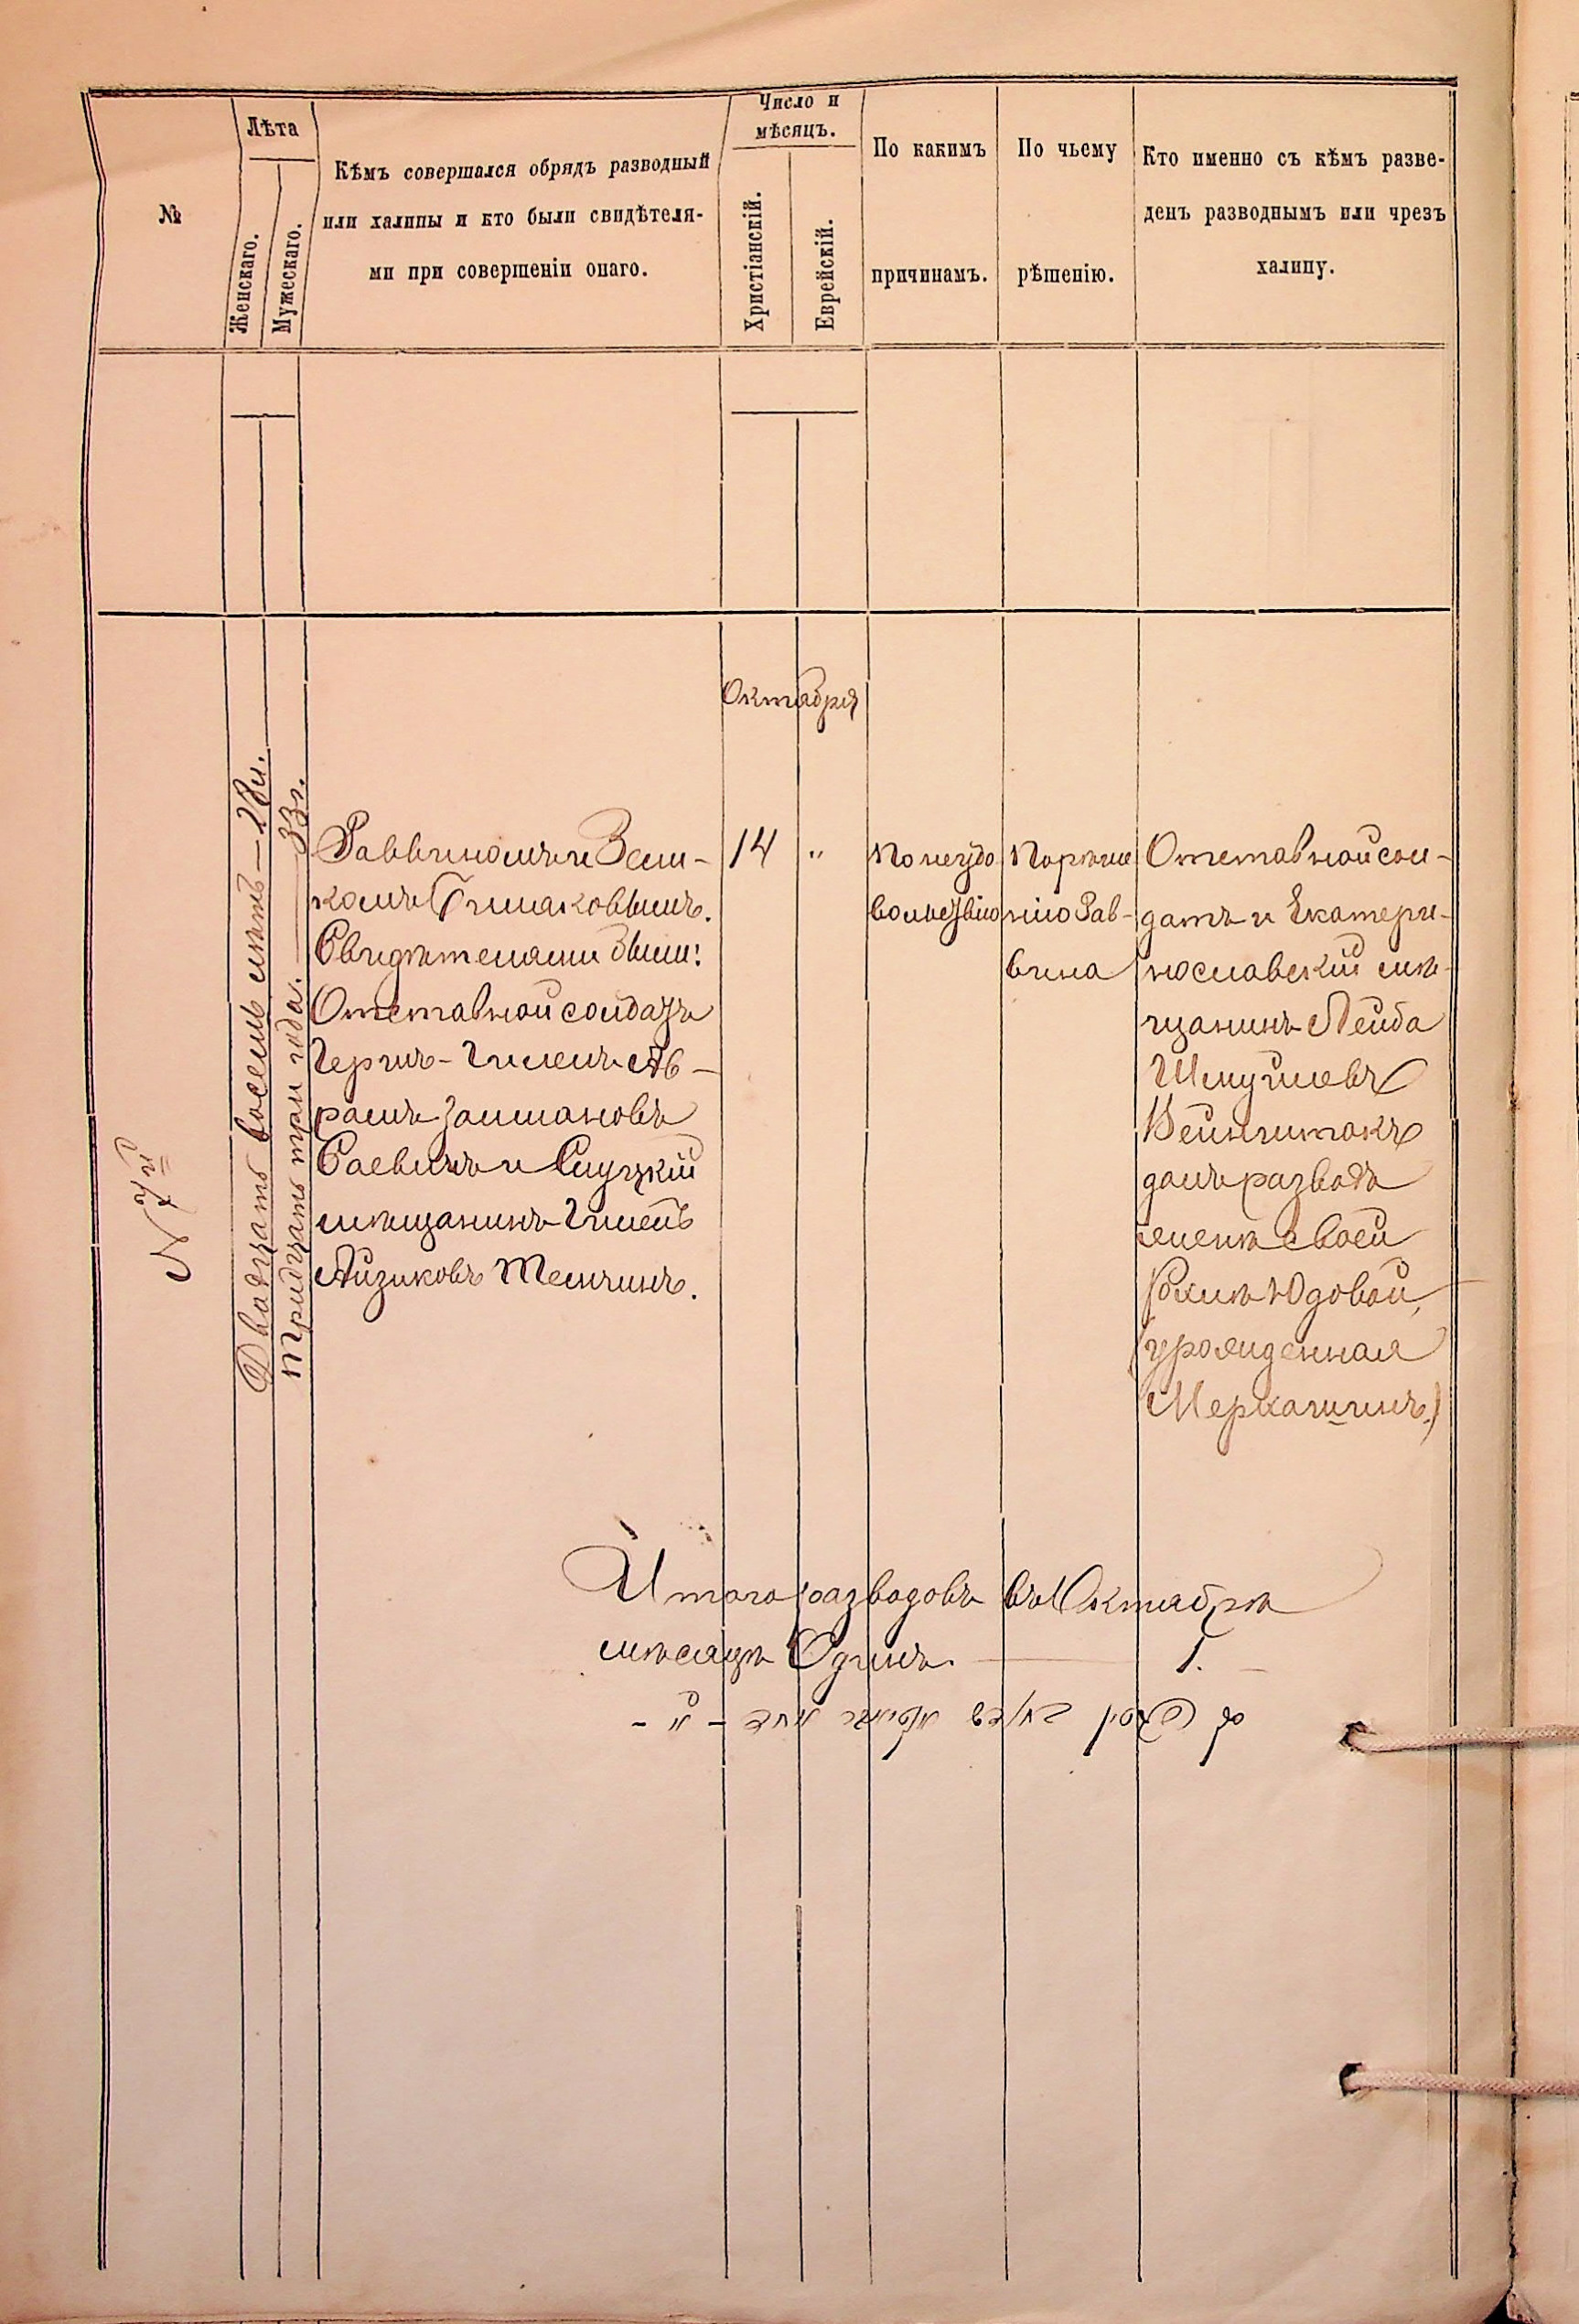 №
Лѣта
Женскаго.
Мужескаго.
Кѣмъ совершался обрядъ разводный
или халицы и кто были свидѣтеля-
ми при совершеніи онаго.
Число и
мѣсяцъ.
Христіанскій.
Еврейскій.
По какимъ
причинамъ.
По чьему
рѣшенію.
Кто именно съ кѣмъ разве-
денъ разводнымъ или чрезъ
халицу.
N 7й
Двадцать восемь лѣтъ — 28 л.
Тридцать три года. — 33 г.
Раввиномъ и Зели-
комъ
Свидѣтелями были:
Отставной солдатъ
Ав-
рамъ Залмановъ
и Слуцкій
мѣщанинъ
Айзиковъ Темчинъ.
Октября
14 "
По неудо
вольствію
По рѣше
нію Рав-
вина
Отставной сол-
датъ и Екатери-
нославскій мѣ-
щанинъ Лейба
Шмуйлевъ
Вейншток
далъ разводъ
женѣ своей
Рохлѣ Юдовой,
(урожденная
Итого разводовъ въ Октябрѣ
мѣсяцѣ Одинъ. — 1.